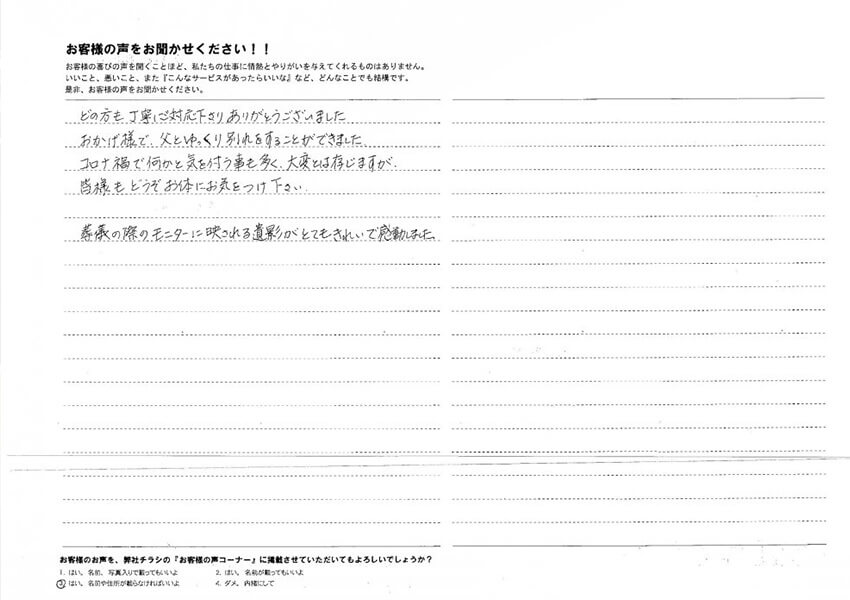 お客様の声をお聞かせください！！
お客様の喜びの声を聞くことほど、私たちの仕事に情熱とやりがいを与えてくれるものはありません。
いいこと、悪いこと、また『こんなサービスがあったらいいな』など、どんなことでも結構です。
是非、お客様の声をお聞かせください。
どの方も丁寧に対応下さりありがとうございました
おかげ様で、父とゆっくり別れをすることができました。
コロナ禍で何かと気を付う事も多く、大変とは存じますが、
皆様もどうぞお体にお気をつけ下さい。
葬儀の際のモニターに映される遺影がとてもきれいで感動しました。
お客様のお声を、弊社チラシの『お客様の声コーナー』に掲載させていただいてもよろしいでしょうか？
1. はい。名前、写真入りで載ってもいいよ 2. はい。名前が載ってもいいよ
3. はい。名前や住所が載らなければいいよ 4. ダメ。内緒にして